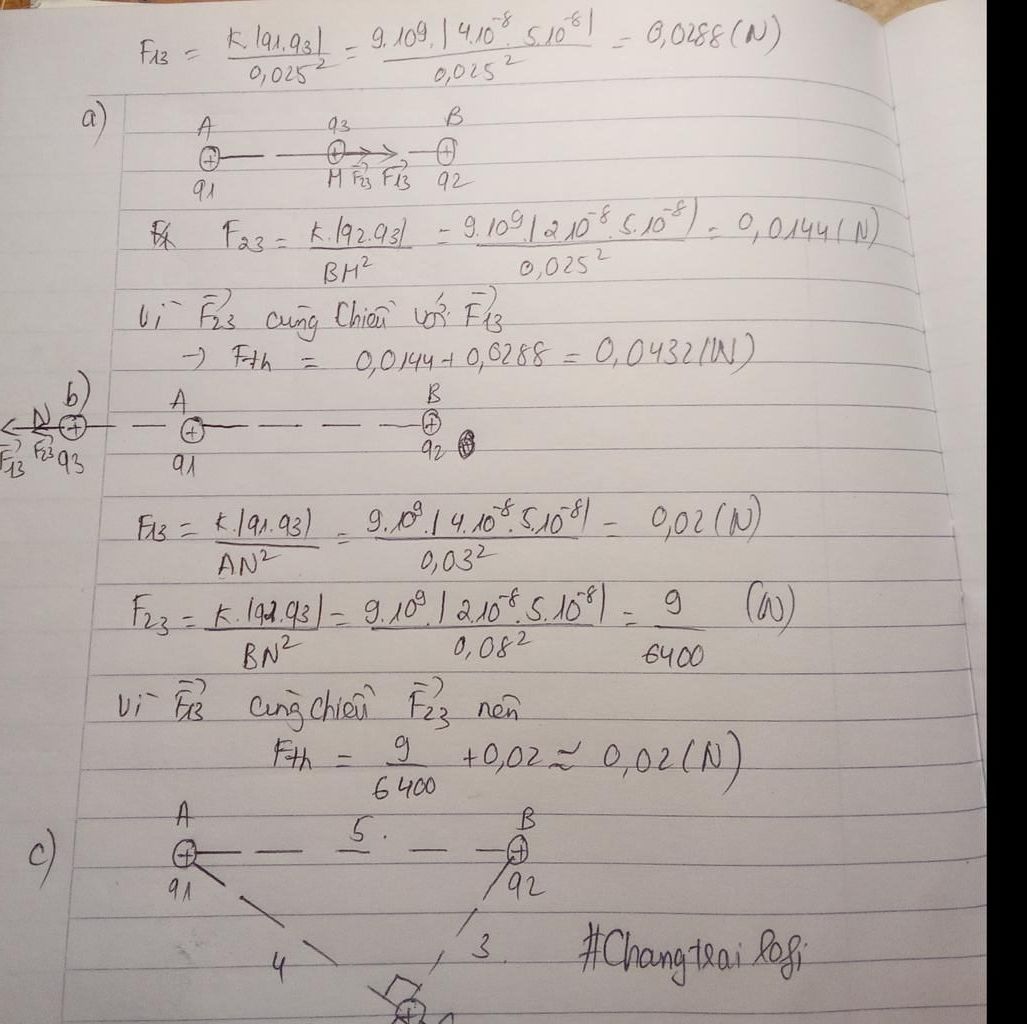 F13 = K.|q1.q3| / 0,025² = 9.10⁹.|4.10⁻⁸.5.10⁻⁸| / 0,025² = 0,0288 (N)
a)
A q3 B
q1 M F⃗23 F⃗13 q2
F23 = K.|q2.q3| / BM² = 9.10⁹.|2.10⁻⁸.5.10⁻⁸| / 0,025² = 0,0144 (N)
Vì F⃗23 cùng chiều với F⃗13
→ Fth = 0,0144 + 0,0288 = 0,0432 (N)
b)
N A B
F⃗13 F⃗23 q3 q1 q2
F13 = K.|q1.q3| / AN² = 9.10⁹.|4.10⁻⁸.5.10⁻⁸| / 0,03² = 0,02 (N)
F23 = K.|q2.q3| / BN² = 9.10⁹.|2.10⁻⁸.5.10⁻⁸| / 0,08² = 9 / 6400 (N)
Vì F⃗13 cùng chiều F⃗23 nên
Fth = 9 / 6400 + 0,02 ≈ 0,02 (N)
c)
A 5. B
q1 q2
4 3. #Changtrai